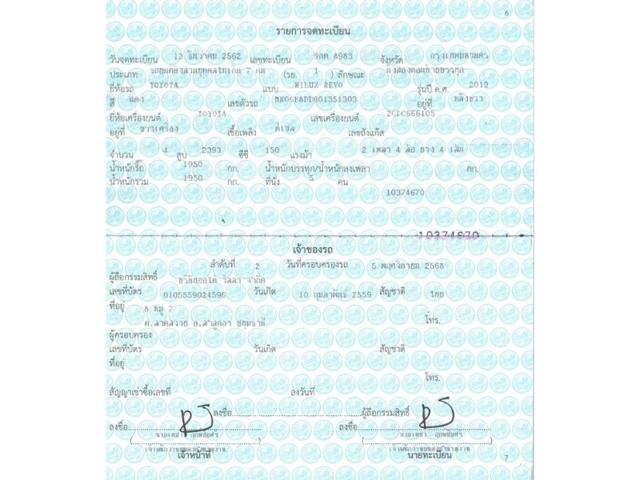 6
รายการจดทะเบียน
วันจดทะเบียน 13 ธันวาคม 2562 เลขทะเบียน 9กค 8983 จังหวัด กรุงเทพมหานคร
ประเภท รถยนต์นั่งส่วนบุคคลไม่เกิน 7 คน (รย. 1 ) ลักษณะ
ยี่ห้อรถ TOYOTA แบบ HILUX REVO รุ่นปี ค.ศ. 2019
สี แดง เลขตัวรถ อยู่ที่
ยี่ห้อเครื่องยนต์ TOYOTA เลขเครื่องยนต์ 2GDC666105
อยู่ที่ ขวาเครื่อง เชื้อเพลิง ดีเซล เลขถังแก๊ส
จำนวน 4 สูบ 2393 ซีซี 150 แรงม้า 2 เพลา 4 ล้อ ยาง 4 เส้น
น้ำหนักรถ 1950 กก. น้ำหนักบรรทุก/น้ำหนักลงเพลา กก.
น้ำหนักรวม 1950 กก. ที่นั่ง 5 คน
10374670
10374670
เจ้าของรถ
ลำดับที่ 2 วันที่ครอบครองรถ 5 พฤศจิกายน 2568
ผู้ถือกรรมสิทธิ์ จำกัด
เลขที่บัตร 0105559024596 วันเกิด 10 กุมภาพันธ์ 2559 สัญชาติ ไทย
ที่อยู่ 8 หมู่ 7
ต.ลาดสวาย อ.ลำลูกกา ปทุมธานี โทร.
ผู้ครอบครอง
เลขที่บัตร วันเกิด สัญชาติ
ที่อยู่
โทร.
สัญญาเช่าซื้อเลขที่ ลงวันที่
ลงชื่อ ผู้ถือกรรมสิทธิ์
ลงชื่อ ลงชื่อ
เจ้าหน้าที่ นายทะเบียน
7